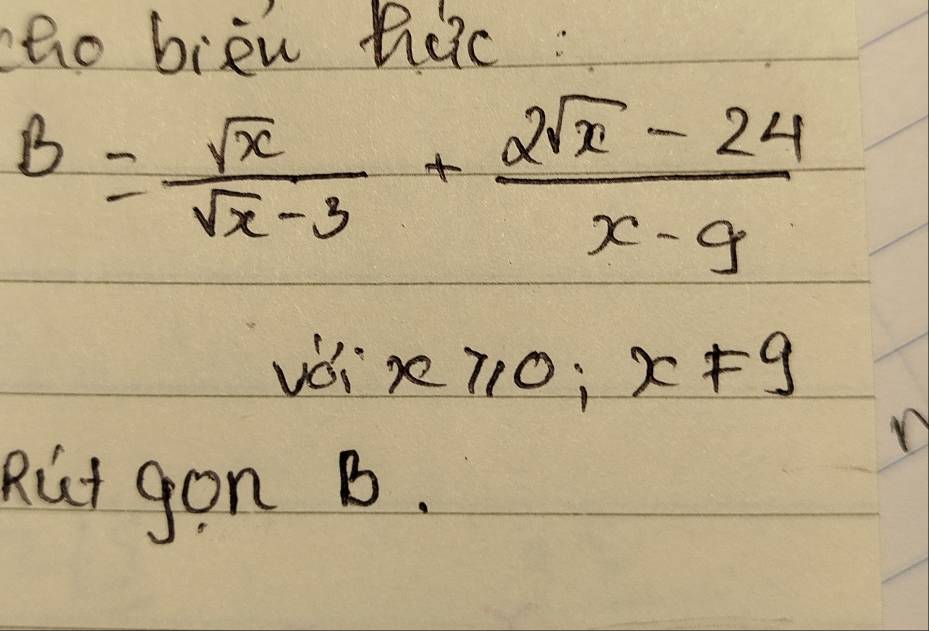 cho biểu thức :
B = \frac{\sqrt{x}}{\sqrt{x} - 3} + \frac{2\sqrt{x} - 24}{x - 9}
với x ≥ 0 ; x ≠ 9
Rút gọn B .